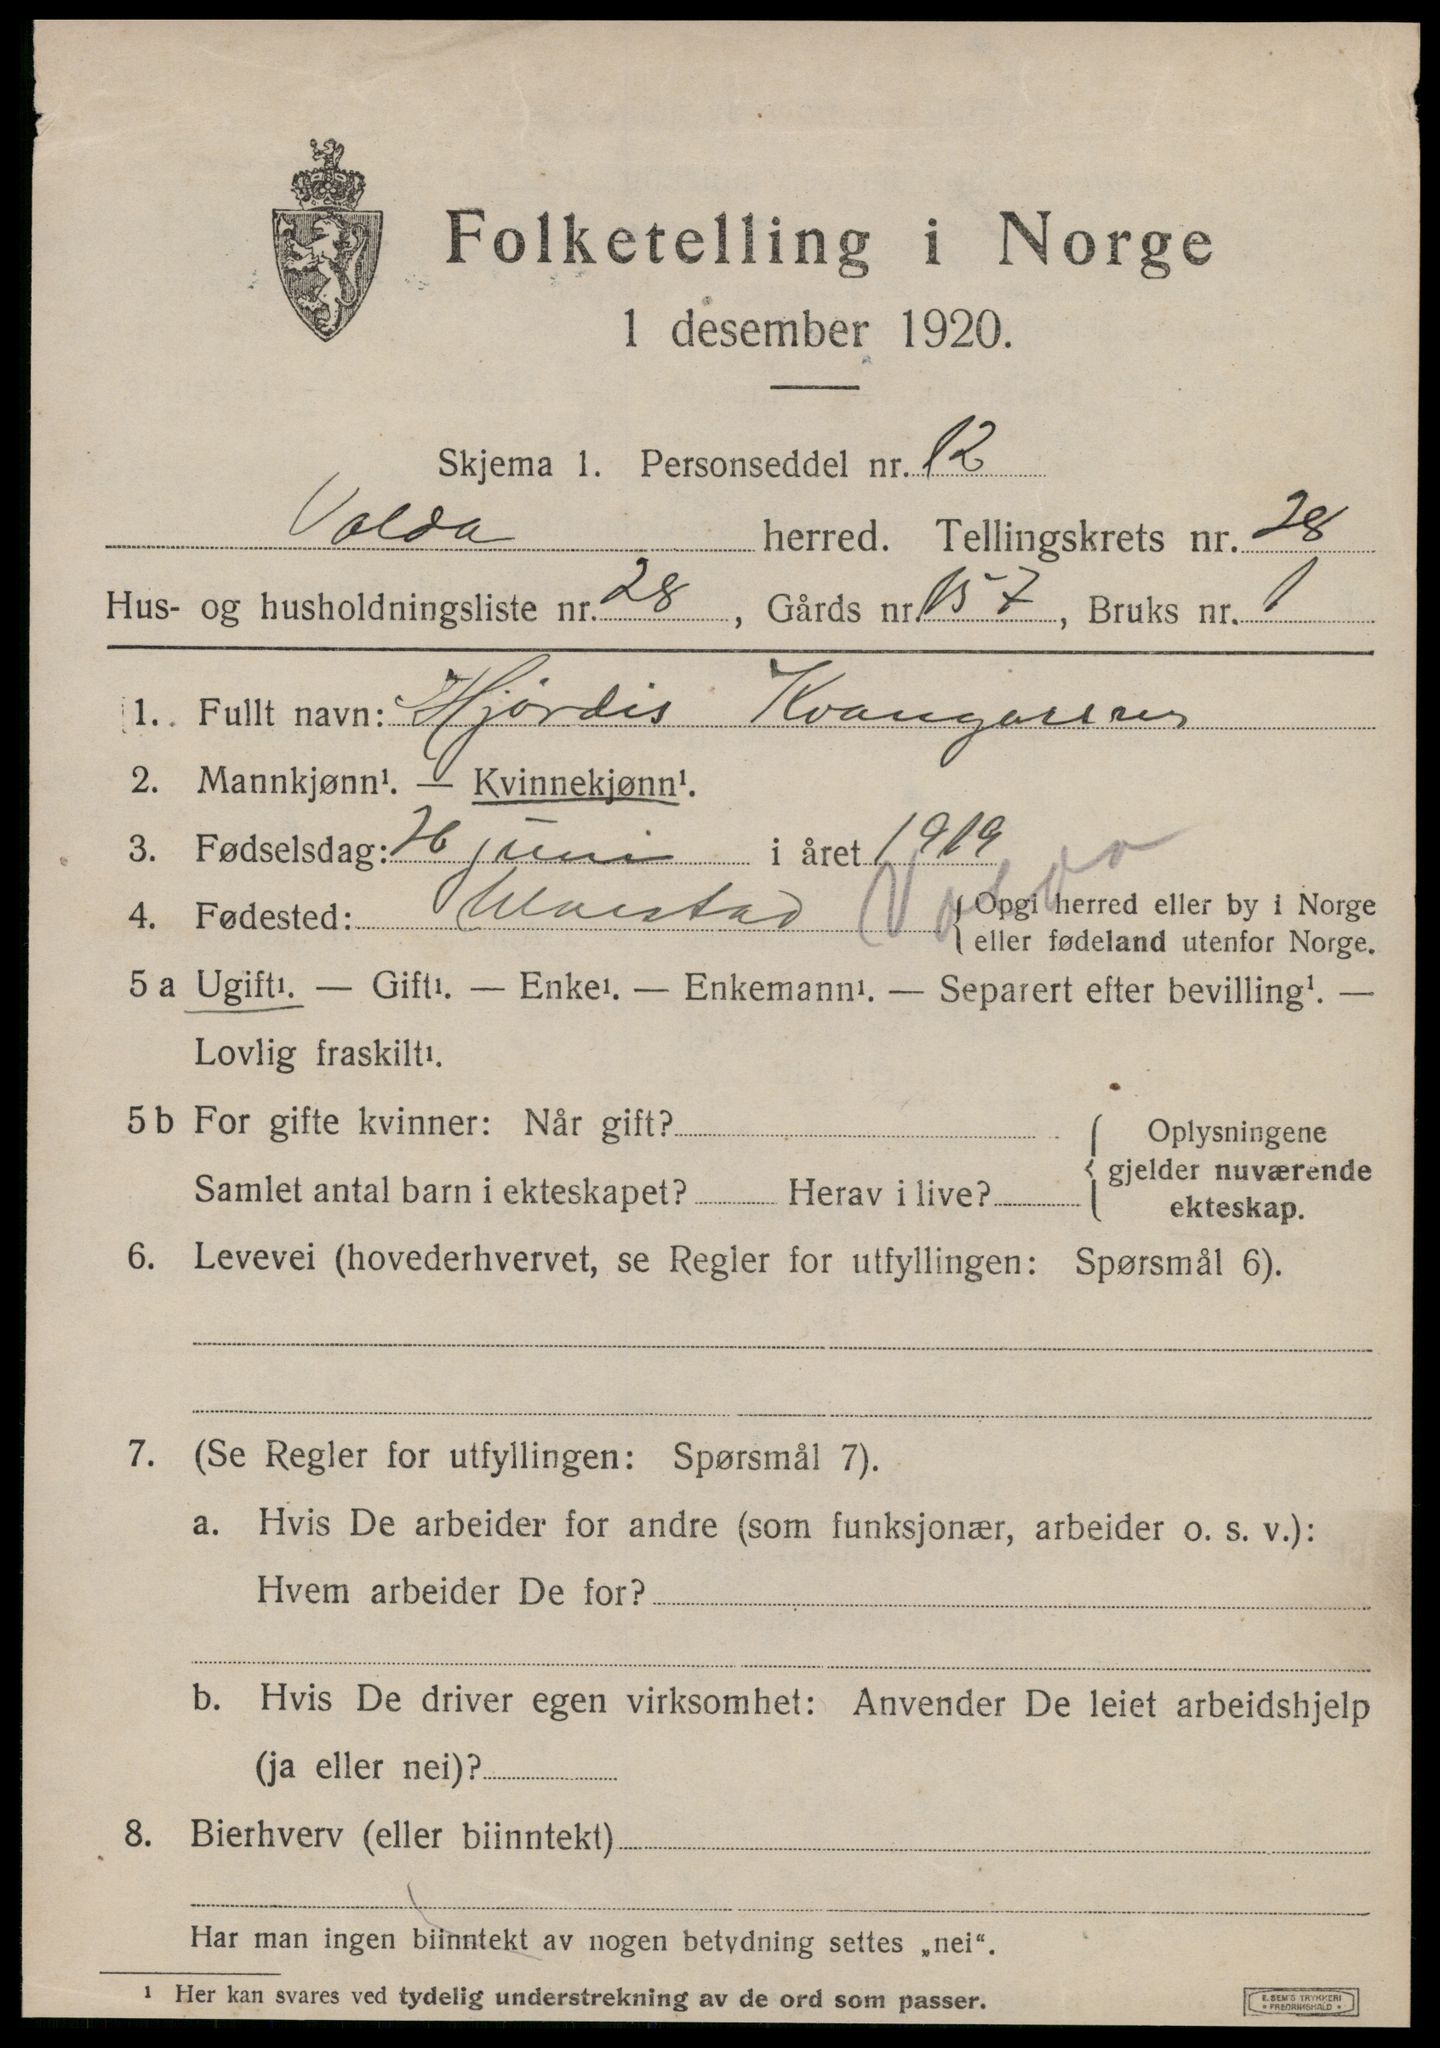 Folketelling i Norge
1 desember 1920.
Skjema 1. Personseddel nr. 12
Volda herred. Tellingskrets nr. 28
Hus- og husholdningsliste nr. 28, Gårds nr. 157, Bruks nr. 1
1. Fullt navn: Hjørdis
2. Mannkjønn¹. — Kvinnekjønn¹.
3. Fødselsdag: 26 juni i året 1919
4. Fødested: Volda { Opgi herred eller by i Norge
eller fødeland utenfor Norge.
5 a Ugift¹. — Gift¹. — Enke¹. — Enkemann¹. — Separert efter bevilling¹. —
Lovlig fraskilt¹.
5 b For gifte kvinner: Når gift? { Oplysningene
gjelder nuværende
Samlet antal barn i ekteskapet? Herav i live?
ekteskap.
6. Levevei (hovederhvervet, se Regler for utfyllingen: Spørsmål 6).
7. (Se Regler for utfyllingen: Spørsmål 7).
a. Hvis De arbeider for andre (som funksjonær, arbeider o. s. v.):
Hvem arbeider De for?
b. Hvis De driver egen virksomhet: Anvender De leiet arbeidshjelp
(ja eller nei)?
8. Bierhverv (eller biinntekt)
Har man ingen biinntekt av nogen betydning settes „nei“.
¹ Her kan svares ved tydelig understrekning av de ord som passer.
E. SEM'S TRYKKERI
• FREDRIKSHALD •